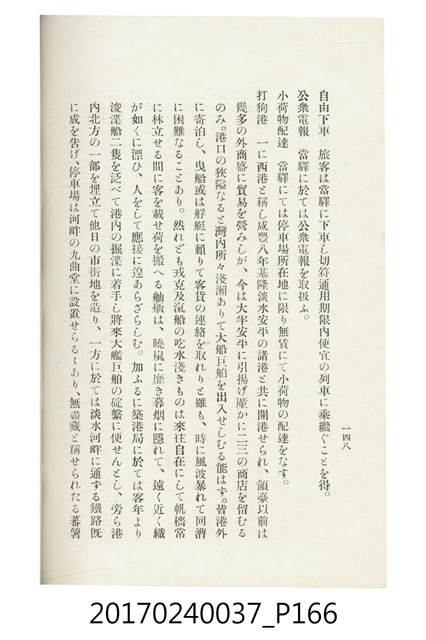 一四八
自由下車　旅客は當驛に下車し切符通用期限內便宜の列車に乘繼ぐことを得。
公衆電報　當驛に於ては公衆電報を取扱ふ。
小荷物配達　當驛にては停車場所在地に限り無賃にて小荷物の配達をなす。
打狗港　一に西港と稱し咸豐八年基隆淡水安平の諸港と共に開港せられ、領臺以前は
幾多の外商盛に貿易を營みしが、今は大半安平に引揚げ僅かに二三の商店を留むる
のみ。港口の狹隘なると灣內所々淺瀨ありて大船巨舶を出入せしむる能はず。皆港外
に寄泊し、曳船或は艀艇に賴りて客貨の連絡を取れりと雖も、時に風波暴れて回漕
に困難なることあり。然れども戎克及滊船の吃水淺きものは來往自在にして帆檣常
に林立せる間に客を載せ荷を搬へる舢舨は、曉嵐に靡き暮烟に隱れて、遠く近く織
が如くに漂ひ、人をして應接に遑あらざらしむ。加ふるに築港局に於ては客年より
浚渫船二隻を泛べて港內の掘渫に着手し將來大艦巨舶の碇繫に便せんとし、旁ら港
內北方の一部を埋立て他日の市街地を造り、一方に於ては淡水河畔に通ずる鐵路旣
に成を告げ、停車場は河畔の九曲堂に設置せらるゝあり、無盡藏と稱せられたる蕃薯
20170240037_P166